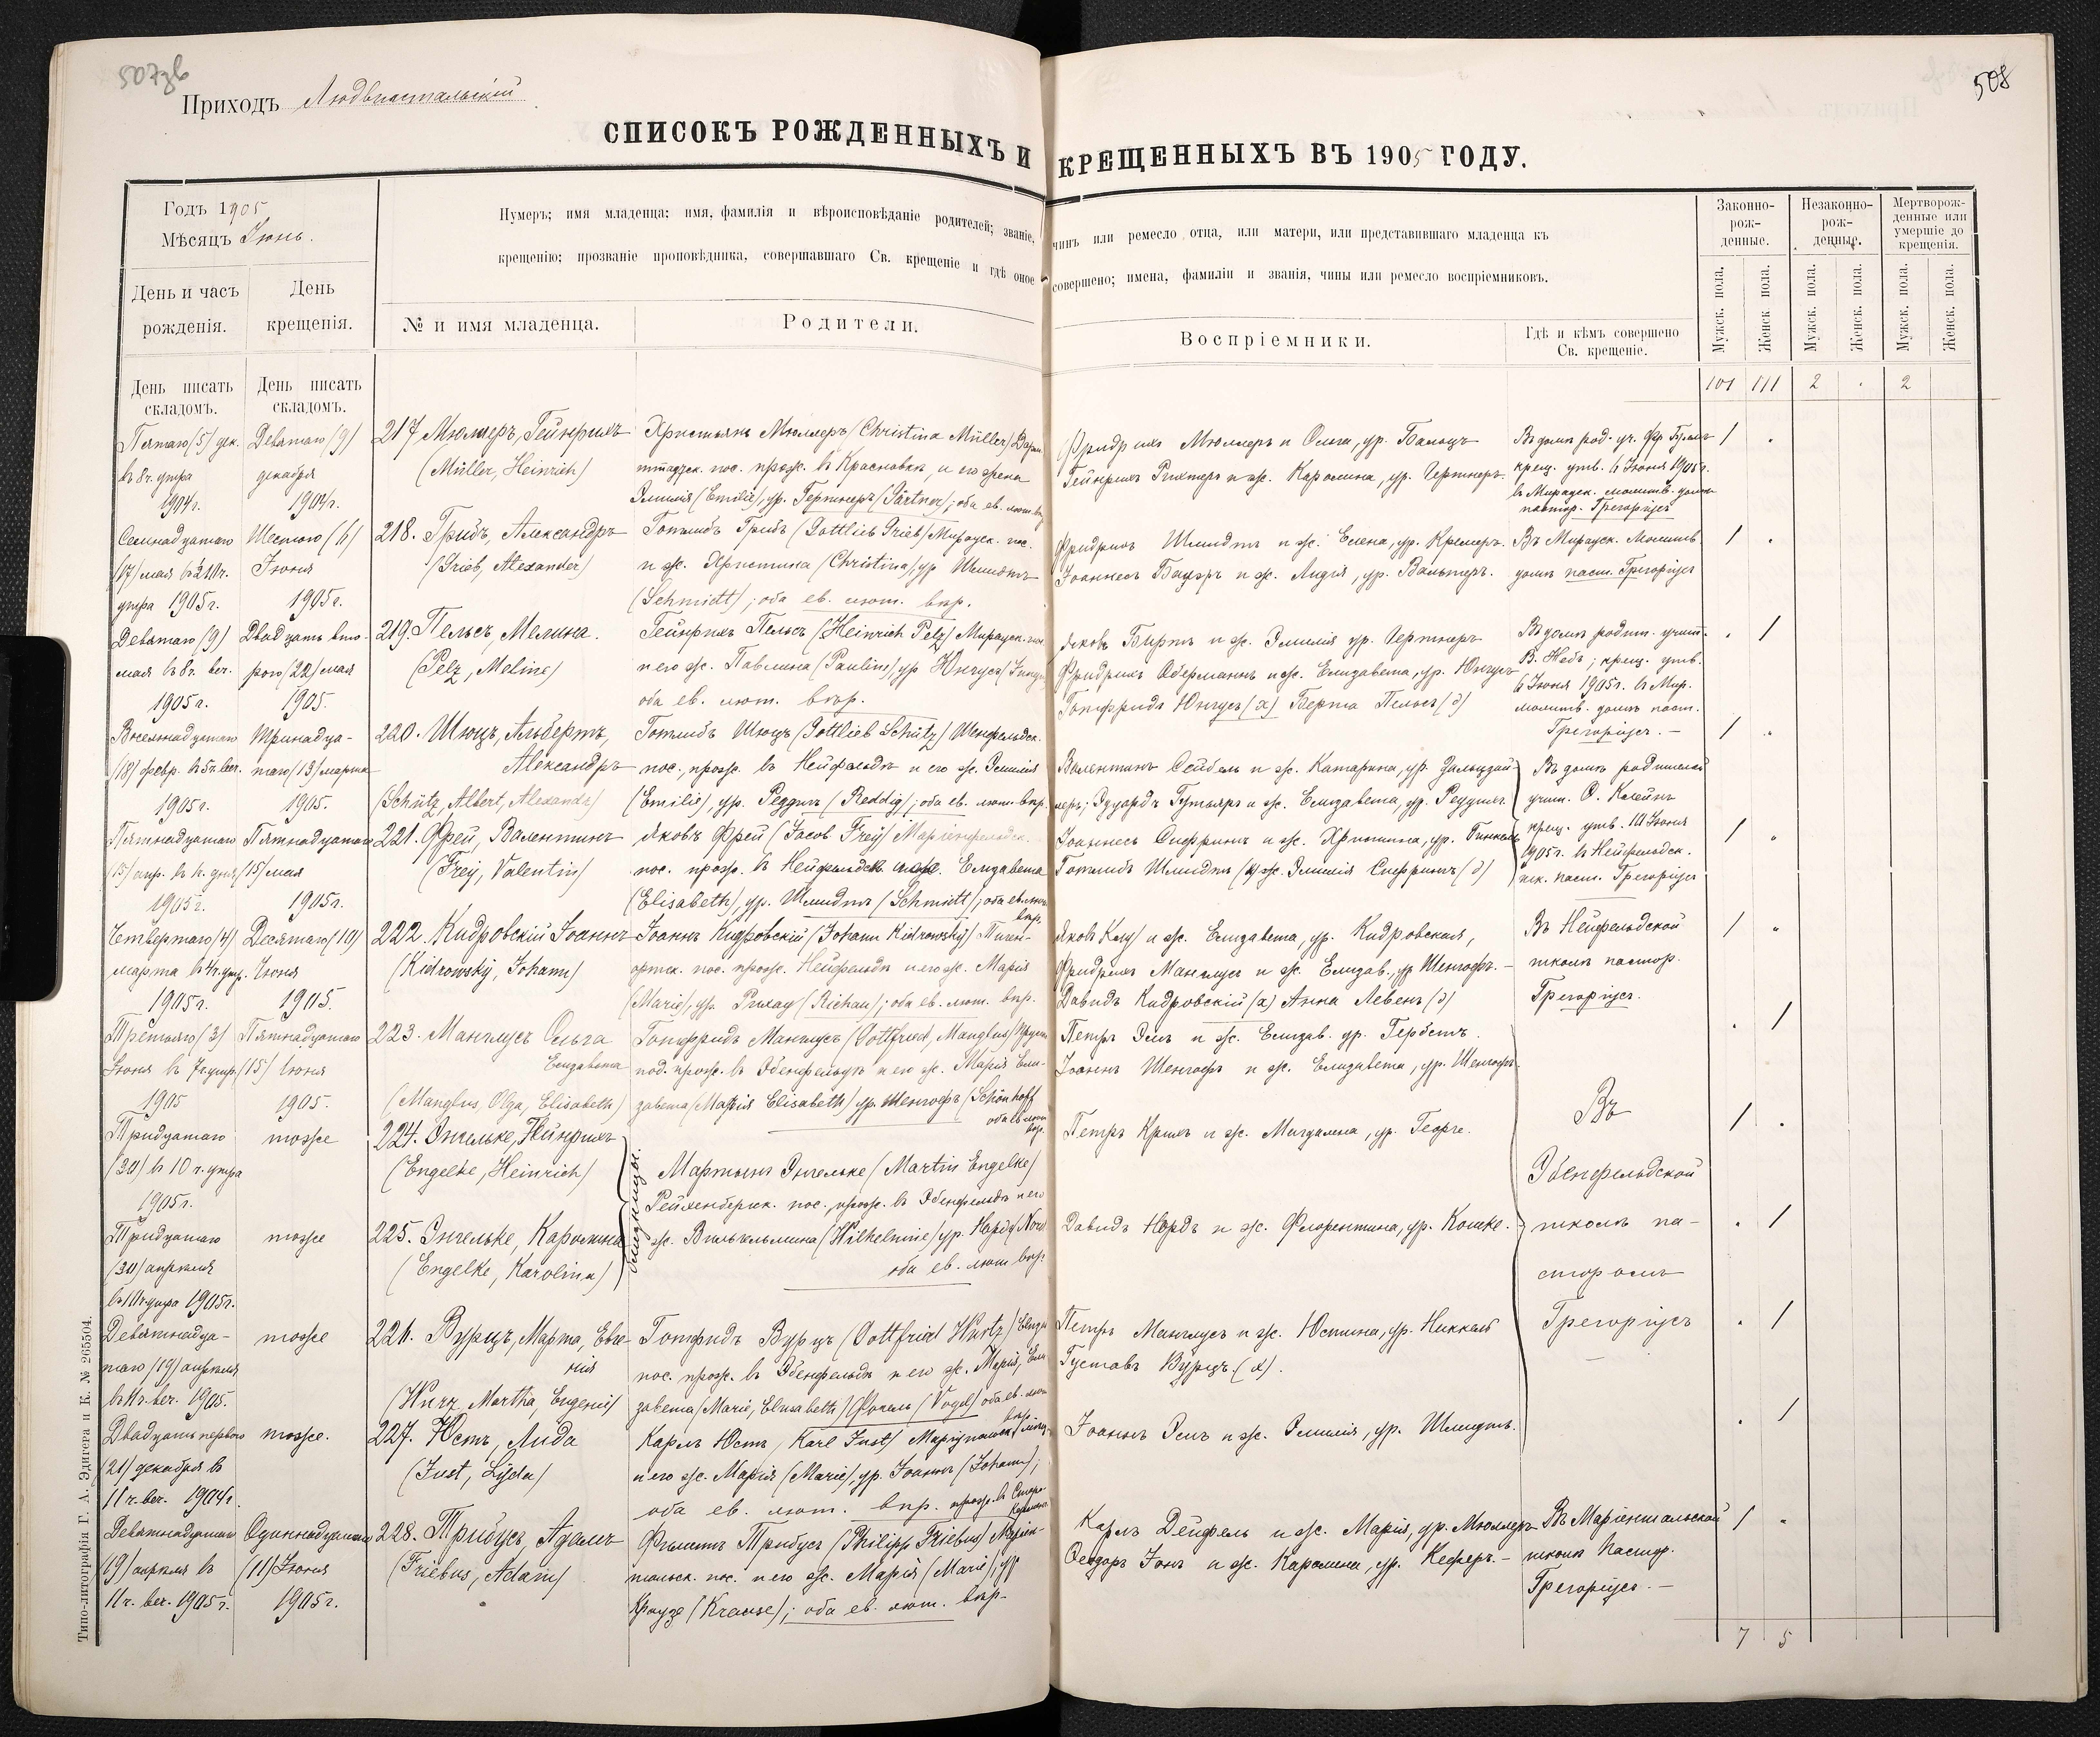 507зв
508
Приходъ Людвигстальскій
СПИСОКЪ РОЖДЕННЫХЪ И КРЕЩЕННЫХЪ ВЪ 1905 ГОДУ.
Годъ 1905
Мѣсяцъ Іюнь.
День и часъ рожденія.
День крещенія.
Нумеръ; имя младенца; имя, фамилія и вѣроисповѣданіе родителей; званіе, чинъ или ремесло отца, или матери, или представившаго младенца къ
крещенію; прозваніе проповѣдника, совершавшаго Св. крещеніе и гдѣ оное совершено; имена, фамиліи и званія, чины или ремесло воспріемниковъ.
№ и имя младенца.
Родители.
Воспріемники.
Гдѣ и кѣмъ совершено Св. крещеніе.
Законно-рож-денные.
Незаконно-рож-денные.
Мертворож-денные или умершіе до крещенія.
Мужск. пола.
Женск. пола.
Мужск. пола.
Женск. пола.
Мужск. пола.
Женск. пола.
День писать складомъ.
День писать складомъ.
101 111 2 . 2
Пятаго (5) дек.
въ 8 ч. утра
1904 г.
Девятаго (9)
декабря
1904 г.
217. Мюллеръ, Гейнрихъ
(Müller, Heinrich)
Христьянъ Мюллеръ (Christina Müller)
пос. прож. въ и его жена
Эмилія (Emilie), ур. Гертнеръ (Gärtner); оба ев. лют.
Фридрихъ Мюллеръ и Ольга, ур.
Гейнрихъ Рихтеръ и ж. Каролина, ур. Гертнеръ.
Въ домѣ род. уч. Фр.
крещ. утв. 6 Іюня 1905 г.
въ молитв. домѣ
пастор. Грегоріусъ
1 .
Семнадцатаго
(17) мая въ 10 ч.
утра 1905 г.
Шестого (6)
Іюня
1905 г.
218. Грибъ, Александръ
(Grieb, Alexander)
Готлибъ Грибъ (Gottlieb Grieb) пос.
и ж. Христина (Christina) ур. Шмидтъ
(Schmidt); оба ев. лют. вѣр.
Фридрихъ Шмидтъ и ж. Елена, ур. Кремеръ.
Іоаннесъ Бауэръ и ж. Лидія, ур. Вальтеръ.
Въ Молитв.
домѣ паст. Грегоріусъ
1 .
Девятаго (9)
мая въ 8 ч. веч.
1905 г.
Двадцать вто-
рого (22) мая
1905.
219. Пельсъ, Мелина.
(Pelz, Meline)
Гейнрихъ Пельсъ (Heinrich Pelz) пос.
и его ж. Павлина (Pauline), ур. Юнгусъ
оба ев. лют. вѣр.
Яковъ и ж. Эмилія ур. Гертнеръ
Фридрихъ Оберманнъ и ж. Елизавета, ур. Юнгусъ
Готфридъ Юнгусъ (х) Берта Пельсъ (д)
Въ домѣ родит. учит.
В. ; крещ. утв.
6 Іюня 1905 г. въ Мир.
молитв. домѣ паст.
Грегоріусъ. —
. 1
Восемнадцатаго
(18) февр. въ 5 ч. веч.
1905 г.
Тринадца-
таго (13) марта
1905.
220. Шюцъ, Альбертъ,
Александръ
(Schütz, Albert, Alexander)
Готлибъ Шюцъ (Gottlieb Schütz) Шенфельдск.
пос., прож. въ Нейфельдѣ и его ж. Эмилія
(Emilie), ур. Реддигъ (Reddig); оба ев. лют. вѣр.
Валентинъ Сейбель и ж. Катарина, ур.
Эдуардъ и ж. Елизавета, ур. Реддигъ.
Въ домѣ родителей
учит. О. Клейнъ
крещ. утв. 10 Іюня
1905 г. въ Нейфельдск.
шк. паст. Грегоріусъ
1 .
Пятнадцатаго
(15) апр. въ ч. дня
1905 г.
Пятнадцатаго
(15) мая
1905 г.
221. Фрей, Валентинъ
(Frey, Valentin)
Яковъ Фрей (Jacob Frey) Маріенфельдск.
пос. прож. въ Нейфельдѣ и его ж. Елизавета
(Elisabeth), ур. Шмидтъ (Schmidt); оба ев. лют. вѣр.
Іоаннесъ и ж. Христина, ур.
Готлибъ Шмидтъ (х) ж. Эмилія (д)
1 .
Четвертаго (4)
марта въ 4 ч. утр.
1905 г.
Десятаго (10)
Іюня
1905.
222. Кидровскій Іоаннъ
(Kidrowsky, Johann)
Іоаннъ Кидровскій (Johann Kidrowsky)
пос. прож. Нейфельдѣ и его ж. Марія
(Marie), ур. Рихау (Richau); оба ев. лют. вѣр.
Яковъ и ж. Елизавета, ур. Кидровская,
Фридрихъ Манглусъ и ж. Елизав., ур. Шенгофъ. —
Давидъ Кидровскій (х) Анна Левенъ (д)
Въ Нейфельдской
школѣ пастор.
Грегоріусъ.
1 .
Третьяго (3)
Іюня въ 7 ч. утр.
1905
Пятнадцатаго
(15) Іюня
1905.
223. Манглусъ Ольга
Елизавета
(Manglus, Olga, Elisabeth)
Готфридъ Манглусъ (Gottfried Manglus)
прож. въ Эбенфельдѣ и его ж. Марія Ели-
завета (Maria Elisabeth) ур. Шенгофъ (Schönhoff
оба ев. лют. вѣр.
Петръ и ж. Елизав. ур. Гербстъ.
Іоаннъ Шенгофъ и ж. Елизавета, ур. Шенгофъ
. 1
Тридцатаго
(30) въ 10 ч. утра
1905 г.
тоже
224. Энгельке, Гейнрихъ
(Engelke, Heinrich)
близнецы.
Мартынъ Энгельке (Martin Engelke)
Рейхенбергск. пос., прож. въ Эбенфельдѣ и его
ж. Вильгельмина (Wilhelmine) ур. Нордъ (Nord
оба ев. лют. вѣр.
Петръ и ж. Магдалина, ур. Георге.
Въ
Эбенфельдской
школѣ па-
сторомъ
Грегоріусъ
1 .
Тридцатаго
(30) апрѣля
въ 10 ч. утра 1905 г.
тоже
225. Энгельке, Каролина
(Engelke, Karolina)
Давидъ Нордъ и ж. Флорентина, ур. Кошке.
. 1
Девятнадца-
таго (19) апрѣля
въ 11 ч. веч. 1905.
тоже
226. Вурцъ, Марта, Евге-
нія
(Wurz, Martha, Eugenie)
Готфридъ Вурцъ (Gottfried Wurtz)
пос. прож. въ Эбенфельдѣ и его ж. Марія, Ели
завета (Marie, Elisabeth) Фогель (Vogel) оба ев. лют. вѣр.
Петръ Манглусъ и ж. Юстина, ур. Никкель
Густавъ Вурцъ. (х).
. 1
Двадцать перваго
(21) декабря въ
11 ч. веч. 1904 г.
тоже.
227. Юстъ, Лида
(Just, Lyda)
Карлъ Юстъ (Karl Just)
и его ж. Марія (Marie), ур. Іоаннъ (Johann);
оба ев. лют. вѣр. прож. въ
Іоаннъ и ж. Эмилія, ур. Шмидтъ.
. 1
Девятнадцатаго
(19) апрѣля въ
11 ч. веч. 1905 г.
Одиннадцатаго
(11) Іюня
1905 г.
228. Трибусъ, Адамъ
(Triebus, Adam)
Филиппъ Трибусъ (Philipp Triebus) Маріен-
тальск. пос. и его ж. Марія (Marie), ур.
Краузе (Krause); оба ев. лют. вѣр.
Карлъ Дейфель и ж. Марія, ур. Мюллеръ
Ѳеодоръ и ж. Каролина, ур. Кеферъ. —
Въ Маріентальской
школѣ Пастор.
Грегоріусъ. —
1 .
7 5
Типо-литографія Г. А. Эдигера и К. № 265504.